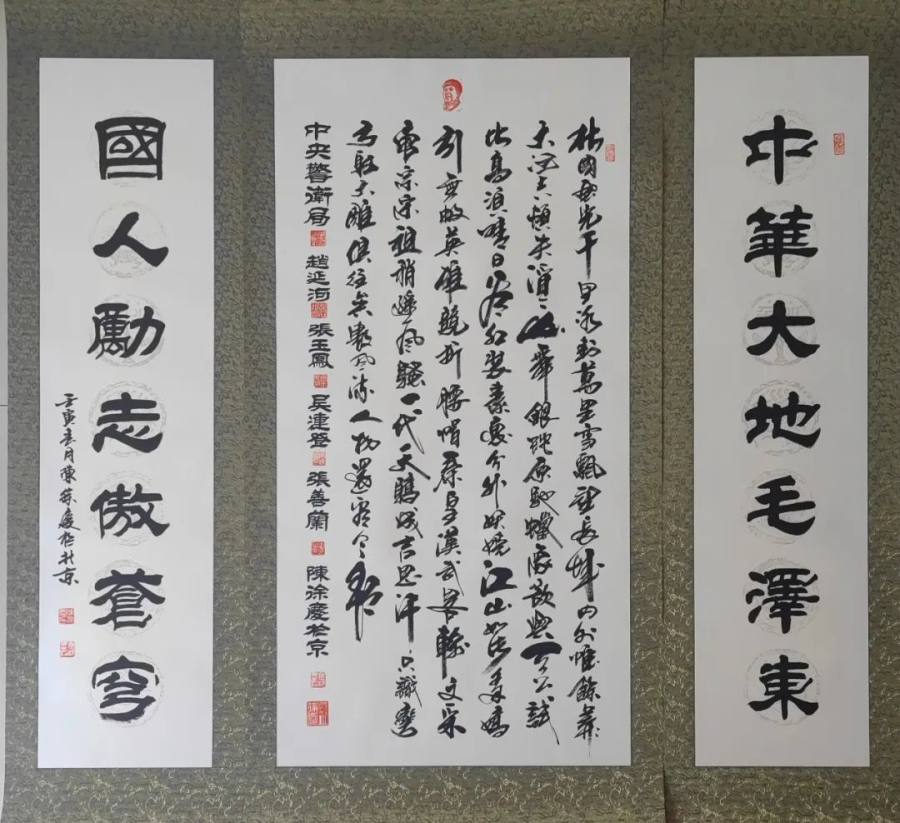 中華大地毛澤東
北國風光千里冰封萬里雪飄望長城內外惟餘莽莽
大河上下頓失滔滔山舞銀蛇原馳蠟象欲與天公試
比高須晴日看紅裝素裹分外妖嬈江山如此多嬌
引無數英雄競折腰惜秦皇漢武略輸文采
唐宗宋祖稍遜風騷一代天驕成吉思汗只識彎
弓射大雕俱往矣數風流人物還看今朝
中央警衛局 張玉鳳 吳連登 張善蘭 陳徐慶於京
國人勵志傲蒼穹
壬寅 月陳徐慶於北京